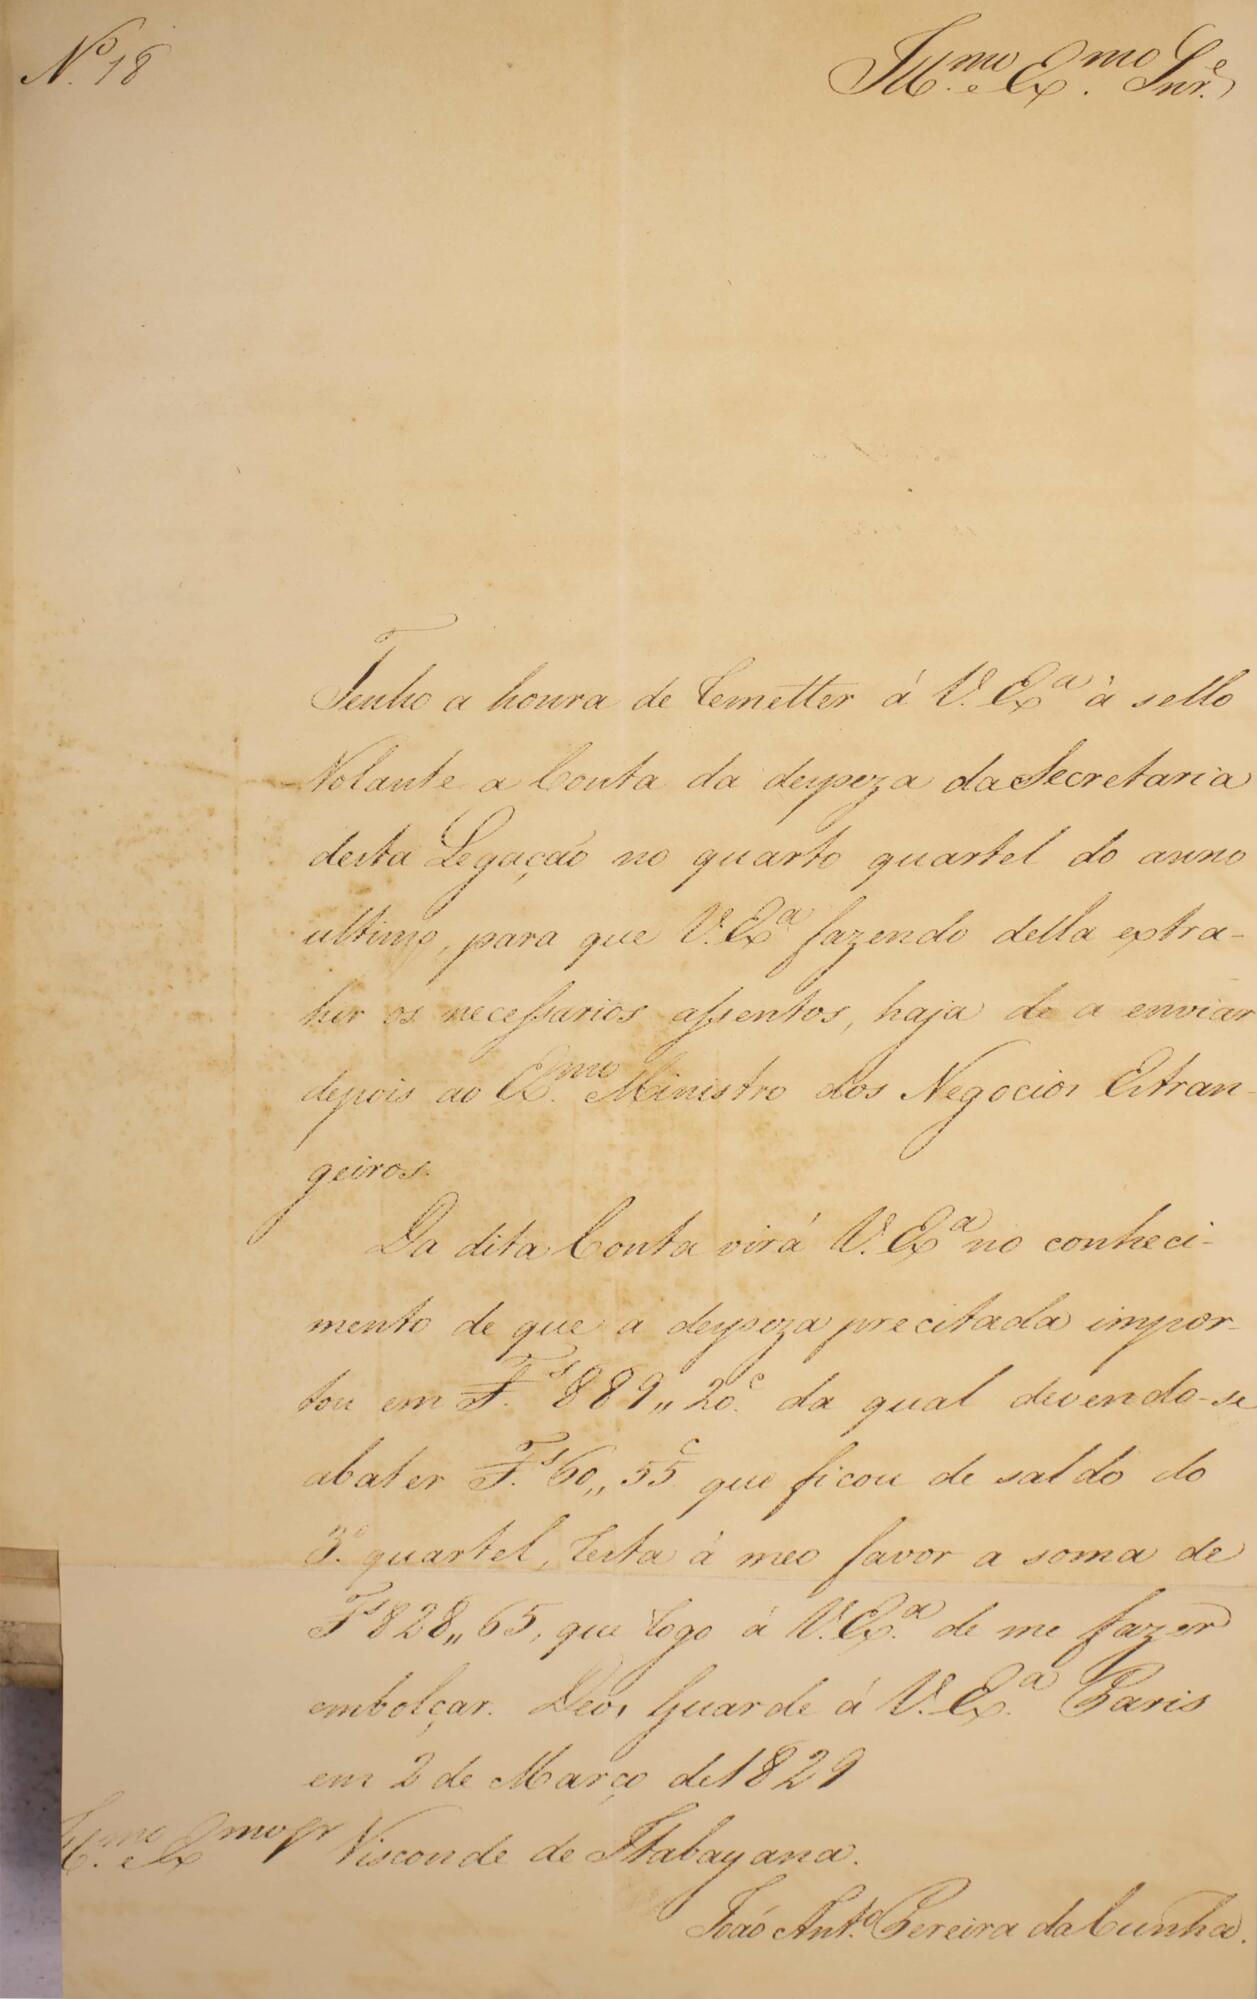 Nº 18
Illmo. e Exmo. Snr.
Tenho a honra de remetter á V. Exª à sello
Volante a Conta da despeza da Secretaria
desta Legação no quarto quartel do anno
ultimo, para que V. Exª fazendo della extra-
hir os necessarios assentos, haja de a enviar
depois ao Exmo. Ministro dos Negocios Estran-
geiros.
Da dita Conta virá V. Exª no conheci-
mento de que a despeza precitada impor-
tou em Fs. 889,, 20c. da qual devendo-se
abater Fs. 60,, 55c que ficou de saldo do
3º quartel, resta á meo favor a soma de
Fs 828,, 65, que rogo á V. Exª de me fazer
embolçar. Deos Guarde á V. Exª Paris
em 2 de Março de 1829
Illmo. e Exmo Sr Visconde de Itabayana.
João Antº Pereira da Cunha.